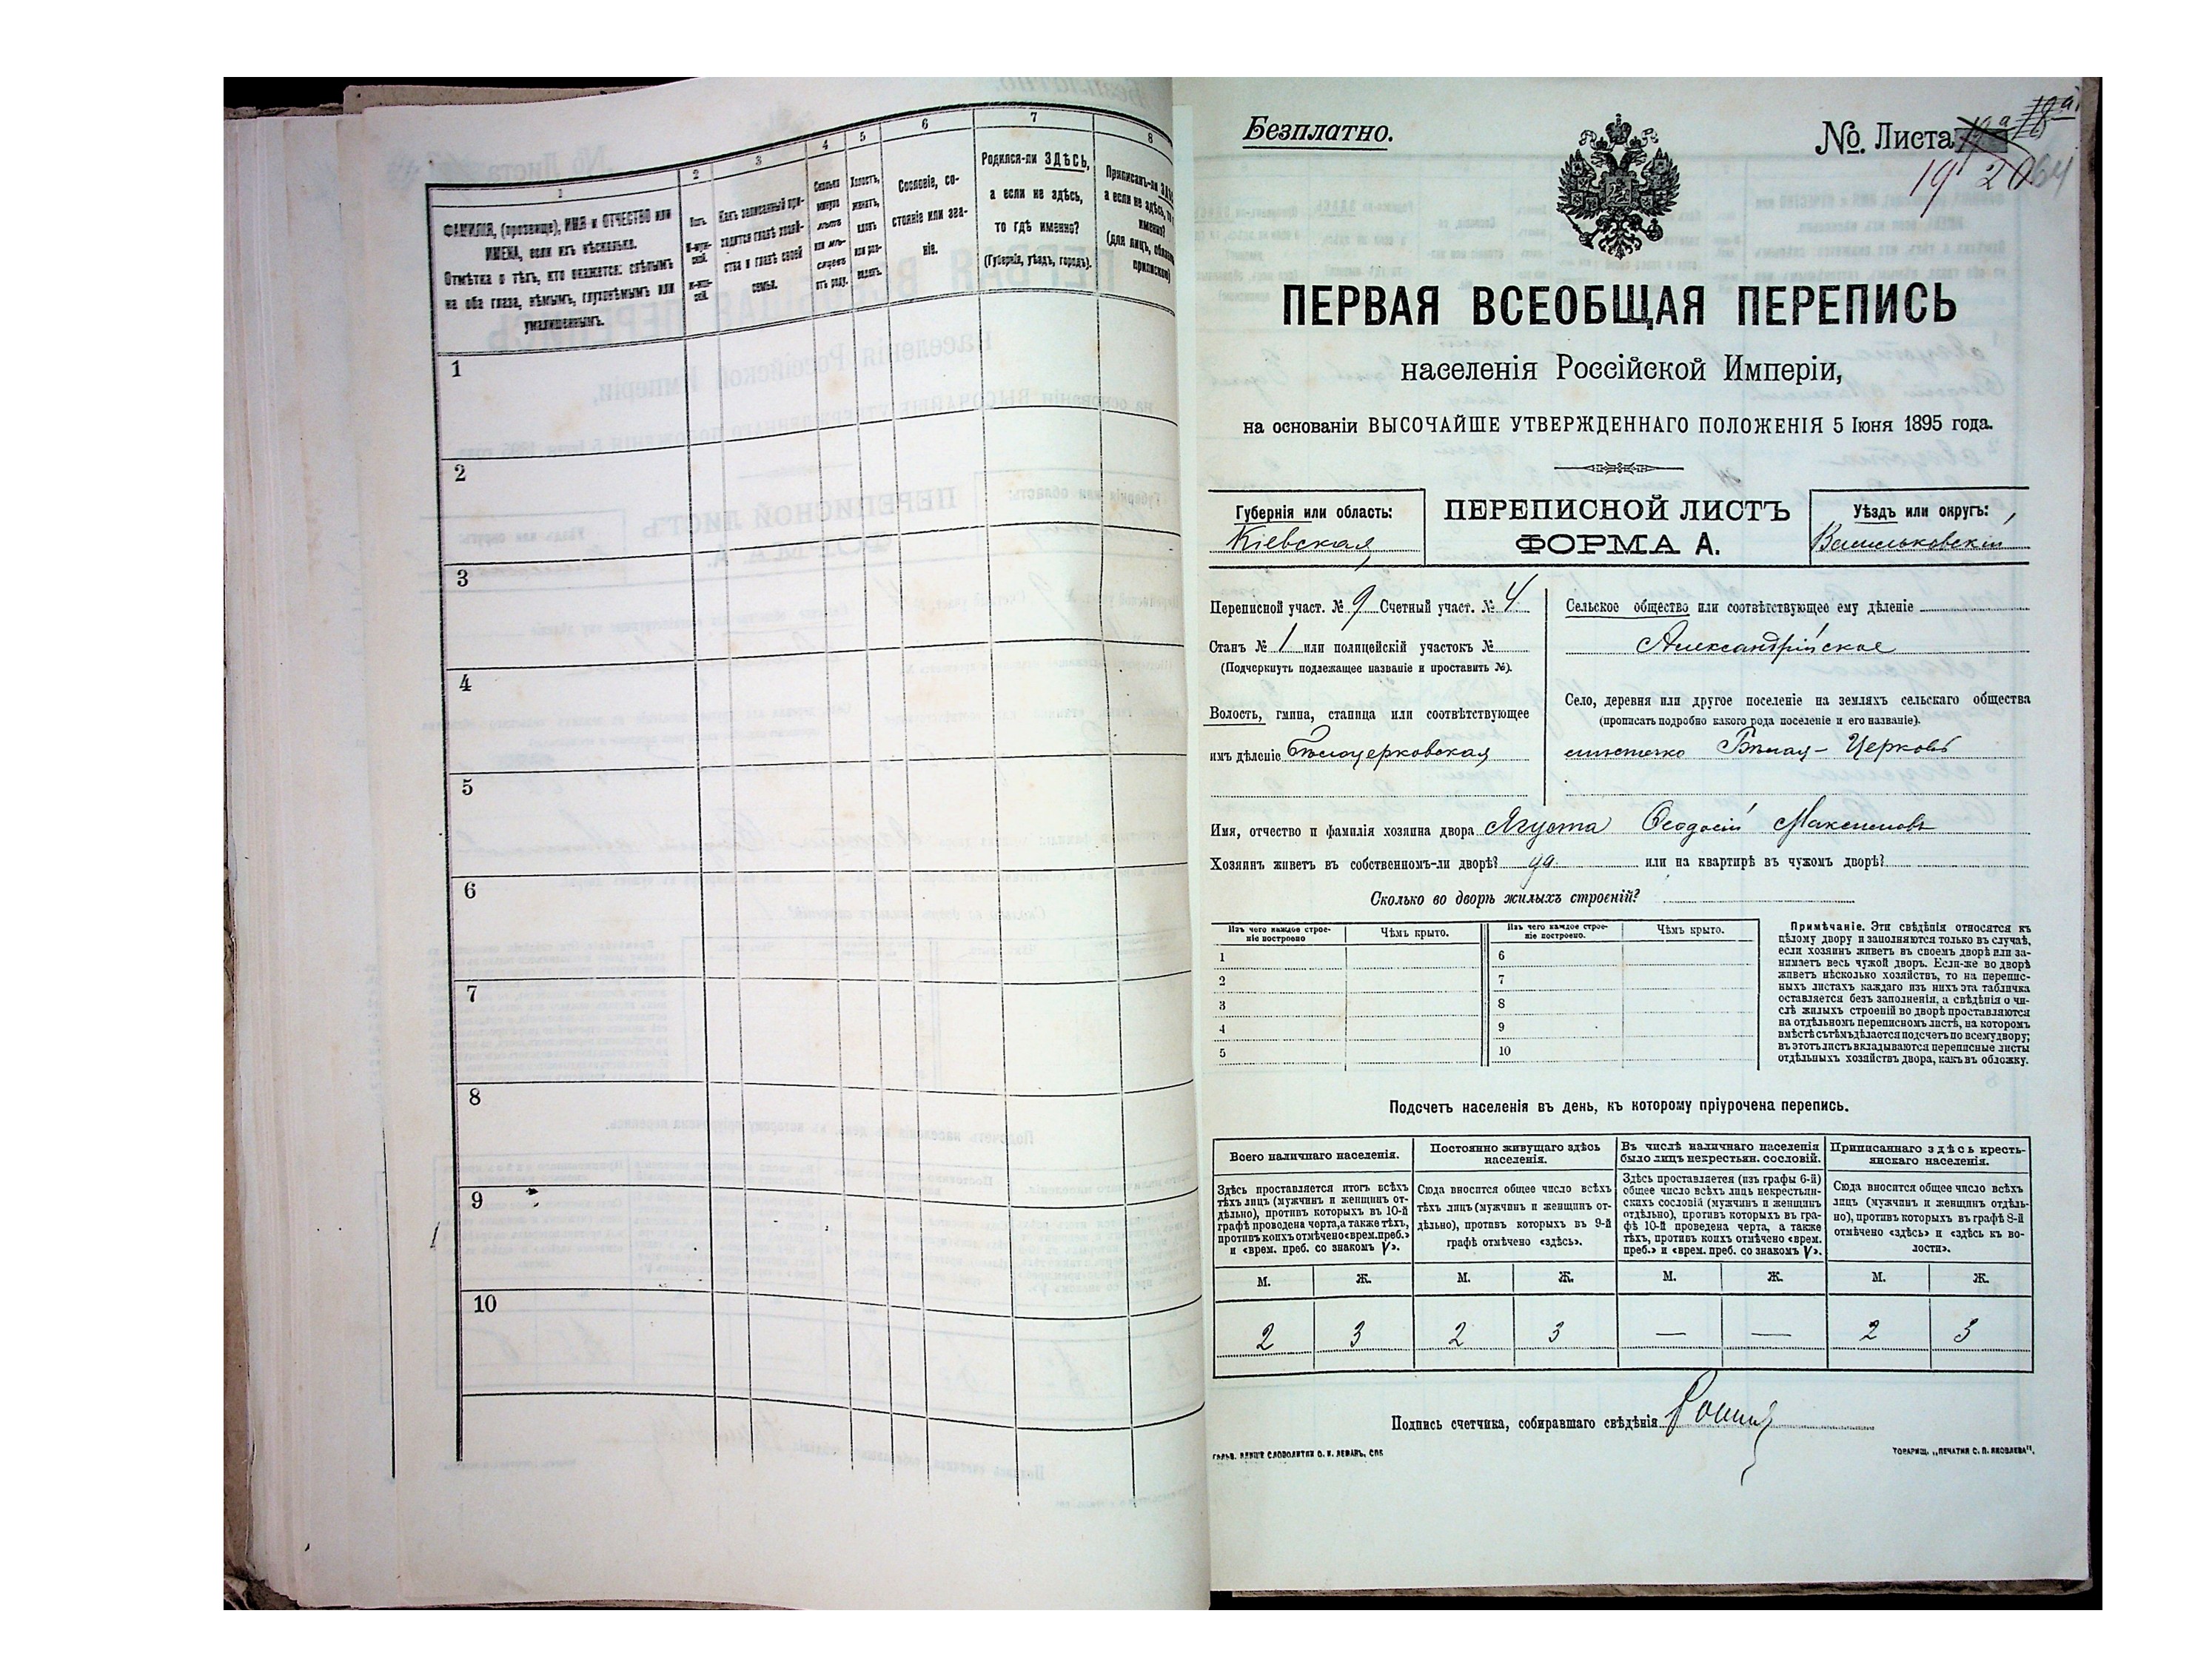 1
2
3
4
5
6
7
8
ФАМИЛІЯ, (прозвище), ИМЯ и ОТЧЕСТВО или
ИМЕНА, если ихъ нѣсколько.
Отмѣтка о тѣхъ, кто окажется: слѣпымъ
на оба глаза, нѣмымъ, глухонѣмымъ или
умалишеннымъ.
Полъ.
М-муж-
ской.
Ж-жен-
скій.
Какъ записанный при-
ходится главѣ хозяй-
ства и главѣ своей
семьи.
Сколько
минуло
лѣтъ
или мѣ-
сяцевъ
отъ роду.
Холостъ,
женатъ,
вдовъ
или раз-
веденъ.
Сословіе, со-
стояніе или зва-
ніе.
Родился-ли ЗДѢСЬ,
а если не здѣсь,
то гдѣ именно?
(Губернія, уѣздъ, городъ).
Приписанъ-ли
а если не здѣсь,
именно?
(для лицъ,
1
2
3
4
5
6
7
8
9
10
Безплатно.
№ Листа
19 20 64
ПЕРВАЯ ВСЕОБЩАЯ ПЕРЕПИСЬ
населенія Россійской Имперіи,
на основаніи ВЫСОЧАЙШЕ УТВЕРЖДЕННАГО ПОЛОЖЕНІЯ 5 Іюня 1895 года.
Губернія или область:
Кіевская
ПЕРЕПИСНОЙ ЛИСТЪ
ФОРМА А.
Уѣздъ или округъ:
Васильковскій
Переписной участ. № 9 Счетный участ. № 4
Станъ № 1 или полицейскій участокъ №
(Подчеркнуть подлежащее названіе и проставить №).
Волость, гмина, станица или соотвѣтствующее
имъ дѣленіе Бѣлоцерковская
Сельское общество или соотвѣтствующее ему дѣленіе
Александрійское
Село, деревня или другое поселеніе на земляхъ сельскаго общества
(прописать подробно какого рода поселеніе и его названіе).
мѣстечко Бѣлая-Церковь
Имя, отчество и фамилія хозяина двора Ягуота Ѳеодосій Максимовъ
Хозяинъ живетъ въ собственномъ-ли дворѣ? да или на квартирѣ въ чужомъ дворѣ?
Сколько во дворѣ жилыхъ строеній?
Изъ чего каждое строе-
ніе построено
Чѣмъ крыто.
Изъ чего каждое строе-
ніе построено.
Чѣмъ крыто.
1
2
3
4
5
6
7
8
9
10
Примѣчаніе. Эти свѣдѣнія относятся къ
цѣлому двору и заполняются только въ случаѣ,
если хозяинъ живетъ въ своемъ дворѣ или за-
нимаетъ весь чужой дворъ. Если-же во дворѣ
живетъ нѣсколько хозяйствъ, то на перепис-
ныхъ листахъ каждаго изъ нихъ эта табличка
оставляется безъ заполненія, а свѣдѣнія о чи-
слѣ жилыхъ строеній во дворѣ проставляются
на отдѣльномъ переписномъ листѣ, на которомъ
вмѣстѣ съ тѣмъ дѣлается подсчетъ по всему двору;
въ этотъ листъ вкладываются переписные листы
отдѣльныхъ хозяйствъ двора, какъ въ обложку.
Подсчетъ населенія въ день, къ которому пріурочена перепись.
Всего наличнаго населенія.
Постоянно живущаго здѣсь
населенія.
Въ числѣ наличнаго населенія
было лицъ некрестьян. сословій.
Приписаннаго здѣсь кресть-
янскаго населенія.
Здѣсь проставляется итогъ всѣхъ
тѣхъ лицъ (мужчинъ и женщинъ от-
дѣльно), противъ которыхъ въ 10-й
графѣ проведена черта, а также тѣхъ,
противъ коихъ отмѣчено «врем. преб.»
и «врем. преб. со знакомъ V».
Сюда вносится общее число всѣхъ
тѣхъ лицъ (мужчинъ и женщинъ от-
дѣльно), противъ которыхъ въ 9-й
графѣ отмѣчено «здѣсь».
Здѣсь проставляется (изъ графы 6-й)
общее число всѣхъ лицъ некрестьян-
скихъ сословій (мужчинъ и женщинъ
отдѣльно), противъ которыхъ въ гра-
фѣ 10-й проведена черта, а также
тѣхъ, противъ коихъ отмѣчено «врем.
преб.» и «врем. преб. со знакомъ V».
Сюда вносится общее число всѣхъ
лицъ (мужчинъ и женщинъ отдѣль-
но), противъ которыхъ въ графѣ 8-й
отмѣчено «здѣсь» и «здѣсь къ во-
лости».
М. Ж. М. Ж. М. Ж. М. Ж.
2 3 2 3 — — 2 3
Подпись счетчика, собиравшаго свѣдѣнія
ТОВАРИЩ. „ПЕЧАТНЯ С. П. ЯКОВЛЕВА".